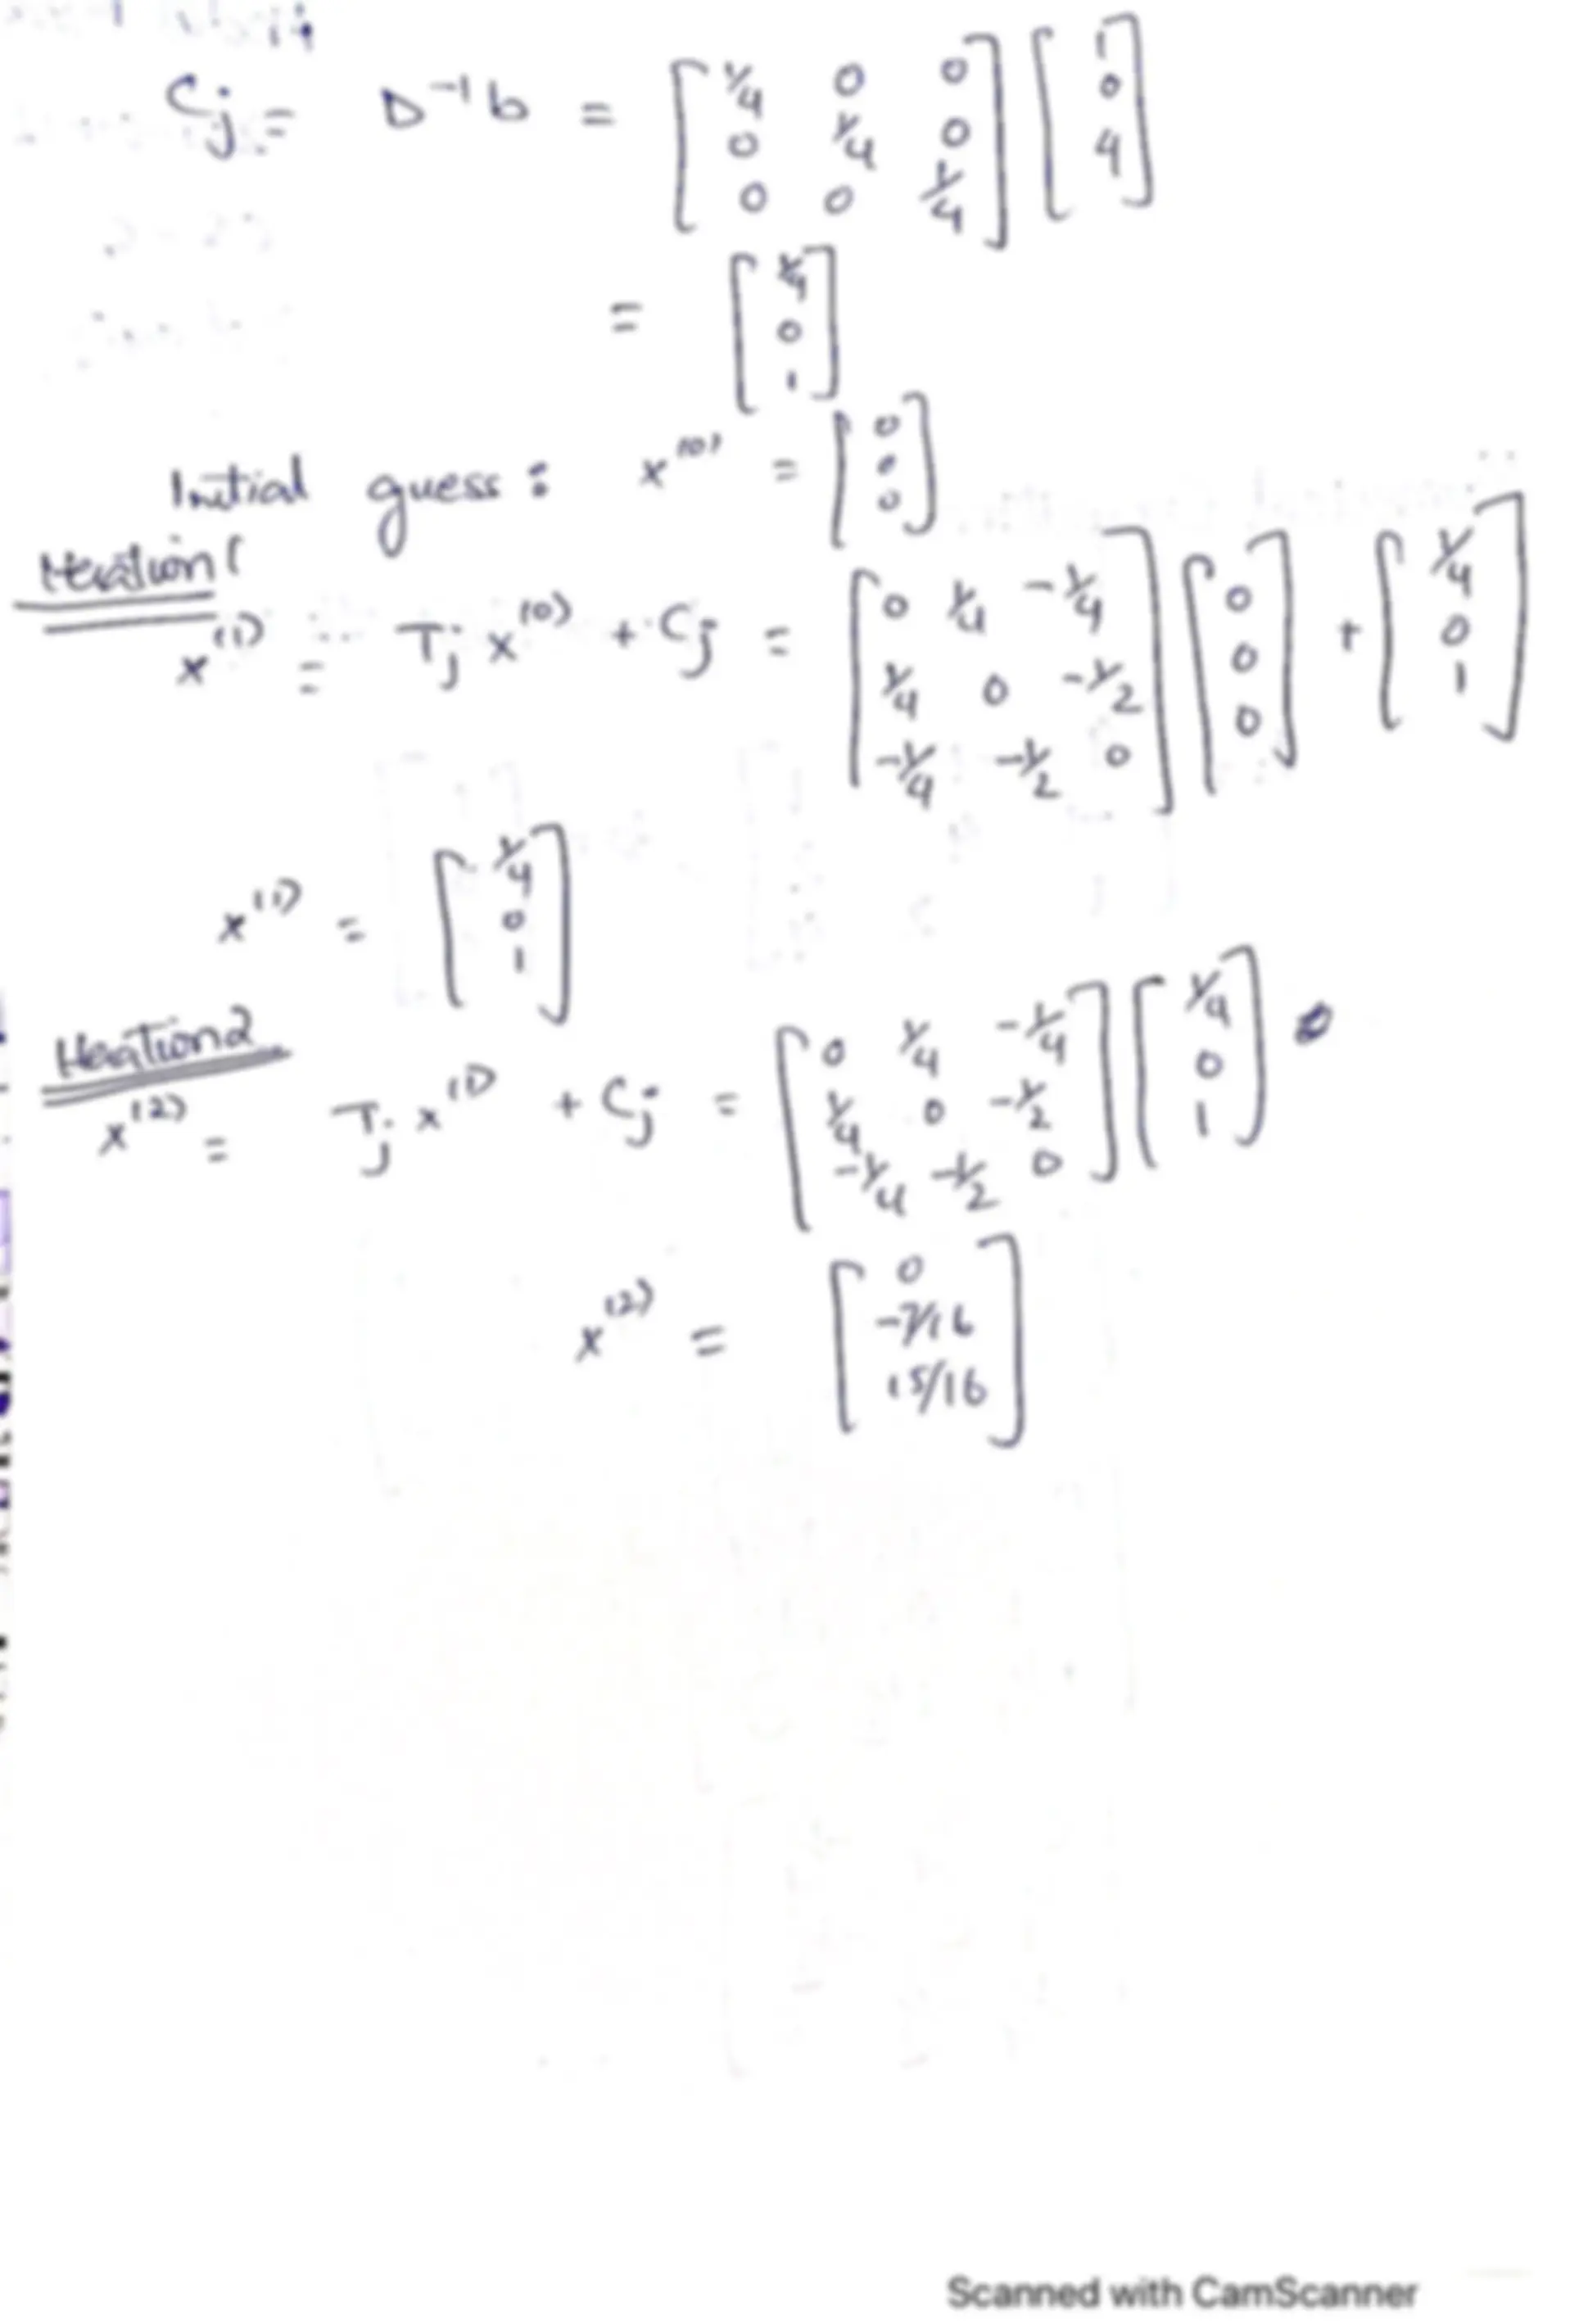 Cj = D⁻¹b = [1/4 0 0; 0 1/4 0; 0 0 1/4] [1; 0; 4]
= [1/4; 0; 1]
Initial guess : x⁽⁰⁾ = [0; 0; 0]
Iteration 1
x⁽¹⁾ = Tj x⁽⁰⁾ + Cj = [0 1/4 -1/4; 1/4 0 -1/2; -1/4 -1/2 0] [0; 0; 0] + [1/4; 0; 1]
x⁽¹⁾ = [1/4; 0; 1]
Iteration 2
x⁽²⁾ = Tj x⁽¹⁾ + Cj = [0 1/4 -1/4; 1/4 0 -1/2; -1/4 -1/2 0] [1/4; 0; 1]
x⁽²⁾ = [0; -7/16; 15/16]
Scanned with CamScanner